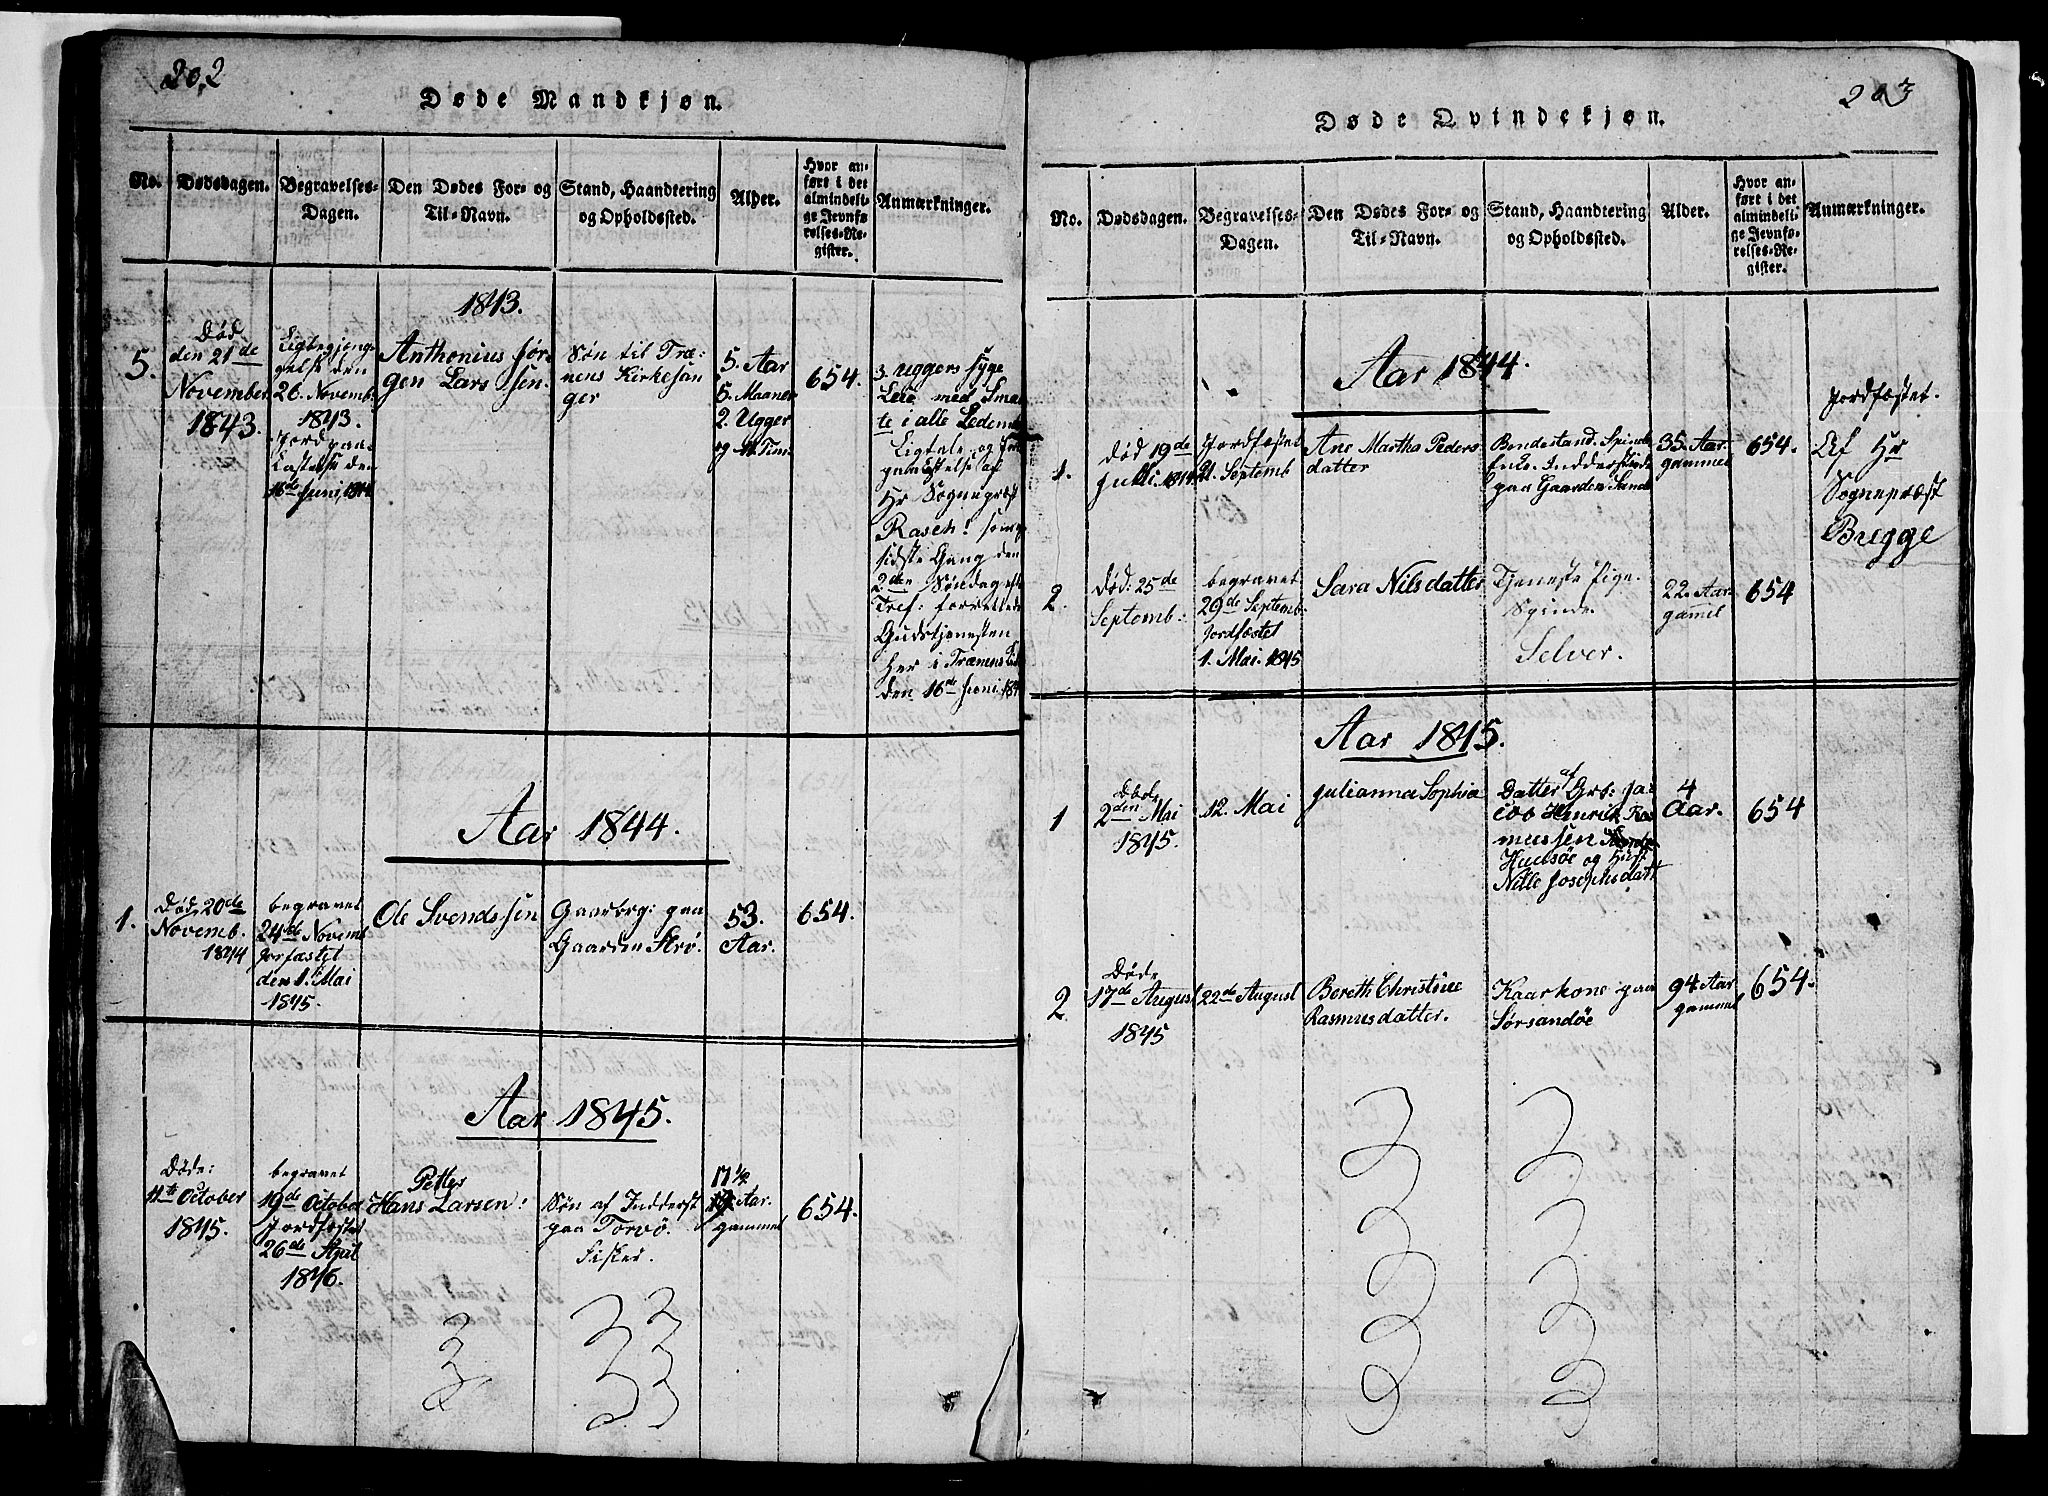 202
Døde Mandkjøn.
No.
Dødsdagen.
Begravelses-
Dagen.
Den Dødes For- og
Til-Navn.
Stand, Haandtering
og Opholdssted.
Alder.
Hvor an-
ført i det
almindeli-
ge Jevnfø-
relses-Re-
gister.
Anmærkninger.
1843.
5.
Død
den 21de
November
1843.
den
26. Novemb.
1843.
Jord paa-
Kastelse den
16de Juni 1844
Anthonius Jør-
gen Lars Sen.
Søn til Træ-
nens Kirkesan
ger
5. Aar
5. Maaner
2. Ugger
og 11. Tim.
654.
3. Uggers syge
Leie med Smær
te i alle Ledem
Ligtale og
af
Hr Sogneprest
Rasch! som
sidste Gang den
2den Søndag eft
Tref: forrettede
Gudstjenesten
her i Trænens
den 16de Juni 184
Aar 1844.
1.
Død 20de
Novemb.
1844
begravet
24de Novemb
Jorfæstet
den 1. Mai
1845.
Ole Svends Sen
Gaarbrg: paa
Gaarden
53.
Aar.
654.
Aar 1845.
Døde:
11te October
1845.
begravet
19de October
Jordfæstet
26de April
1846.
Petter
Hans Larsen:
Søn af Inderst
paa Torvø.
Fisker.
17 1/2
Aar.
gammel
654.
203
Døde Qvindekjøn.
No.
Dødsdagen.
Begravelses-
Dagen.
Den Dødes For- og
Til-Navn.
Stand, Haandtering
og Opholdssted.
Alder.
Hvor an-
ført i det
almindeli-
ge Jevnfø-
relses-Re-
gister.
Anmærkninger.
Aar 1844.
1.
Død 19de
Julli 1844
Jordfæstet
21. Septemb
Ane Martha Peders
datter
Bondestand.
Enke. Inderstinde
paa Gaarden Sand
35. Aar.
gammel
654.
Jordfæstet.
Af Hr
Sogneprest
Brugge
2.
Død: 25de
Septemb:
begravet
29de Septemb.
Jordfæstet
1. Mai. 1845
Sara Nilsdatter
Tjeneste Pige.
Selver.
22. Aar.
gammel
654
Aar 1845.
1
Døde
2den Mai
1845.
12. Mai
Julianna Sophia
Datter af Grb: Ja
cob Hinrick Ras
mussen
Huusøe og Hust
Nille Josephsdatt
4
Aar.
654
2
Døde
17de August
1845
22de August
Bereth Christine
Rasmusdatter.
Kaarkone paa
Sørsandøe
94 Aar
gammel
654.